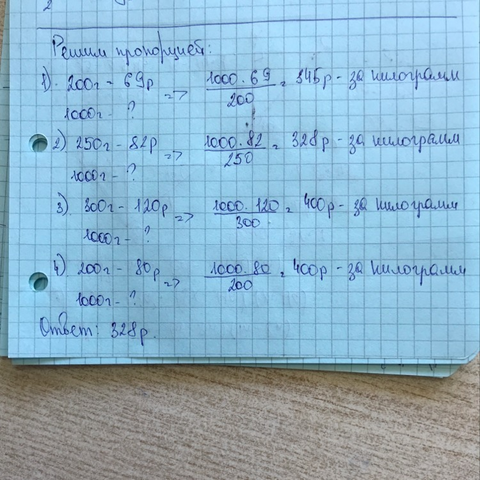 2
Решим пропорцией:
1). 200г - 69р => 1000·69/200 = 345р - за килограмм
1000г - ?
2) 250г - 82р => 1000·82/250 = 328р - за килограмм
1000г - ?
3). 300г - 120р => 1000·120/300 = 400р - за килограмм
1000г - ?
4) 200г - 80р => 1000·80/200 = 400р - за килограмм
1000г - ?
Ответ: 328р.